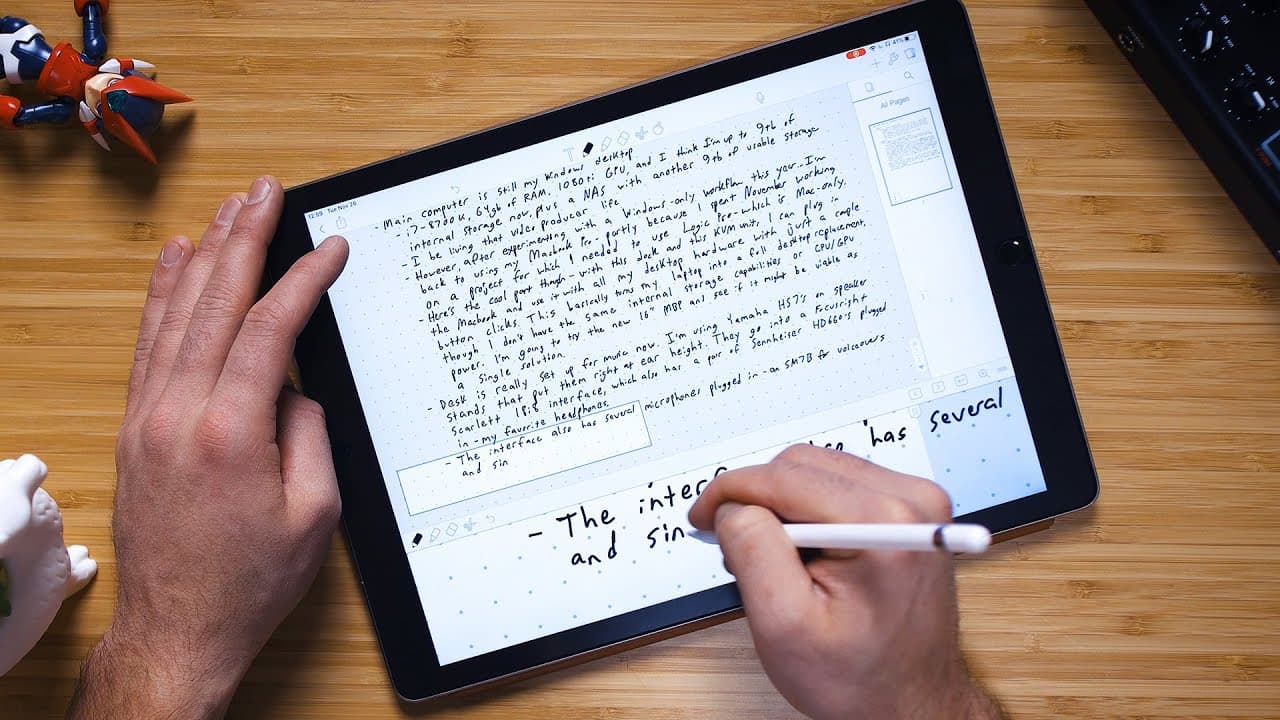 12:59 Tue Nov 26
41%
All Pages
- Main computer is still my Windows desktop
i7-8700K, 64gb of RAM, 1080ti GPU, and I think I'm up to 9tb of
internal storage now, plus a NAS with another 9tb of usable storage
- I be living that video producer life
- However, after experimenting with a Windows-only workflow this year I'm
back to using my Macbook Pro, partly because I spent November working
on a project for which I needed to use Logic Pro-which is Mac-only.
- Here's the cool part though - with this dock and this KVM unit, I can plug in
the Macbook and use it with all my desktop hardware with just a couple
button clicks. This basically turns my laptop into a full desktop replacement,
though I don't have the same internal storage capabilities or CPU/GPU
power. I'm going to try the new 16" MBP and see if it might be viable as
a single solution.
- Desk is really set up for music now. I'm using Yamaha HS7's on speaker
stands that put them right at ear height. They go into a Focusright
Scarlett 18i8 interface, which also has a pair of Sennheiser HD660's plugged
in - my favorite headphones.
- The interface also has several microphones plugged in - an SM7B for voiceovers
and sin
- The interf has several
and sin